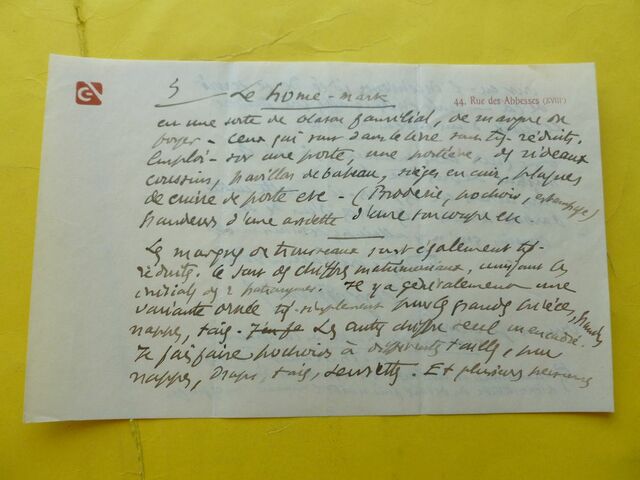 5 Le home-mark
44. Rue des Abbesses (XVIII)
est une sorte de blason familial, de marque de
foyer - Ceux qui sont dans le livre sont réduits.
Emploi - sur une porte, une portière, des rideaux
coussins, pavillon de bateau, sièges en cuir, plaques
de cuivre de porte etc - (Broderie, pochoir, estampage)
d'une assiette d'une soucoupe etc
Les marques de trousseaux sont également
réduits. Ce sont des chiffres matrimoniaux, unissant les
initiales des 2 patronymes. Il y a généralement une
variante ornée simplement pour les grandes pièces,
nappes, taies. Les autres chiffre seul
Je fais faire pochoirs à différentes tailles, pour
nappes, draps, taies, serviettes. Et plusieurs